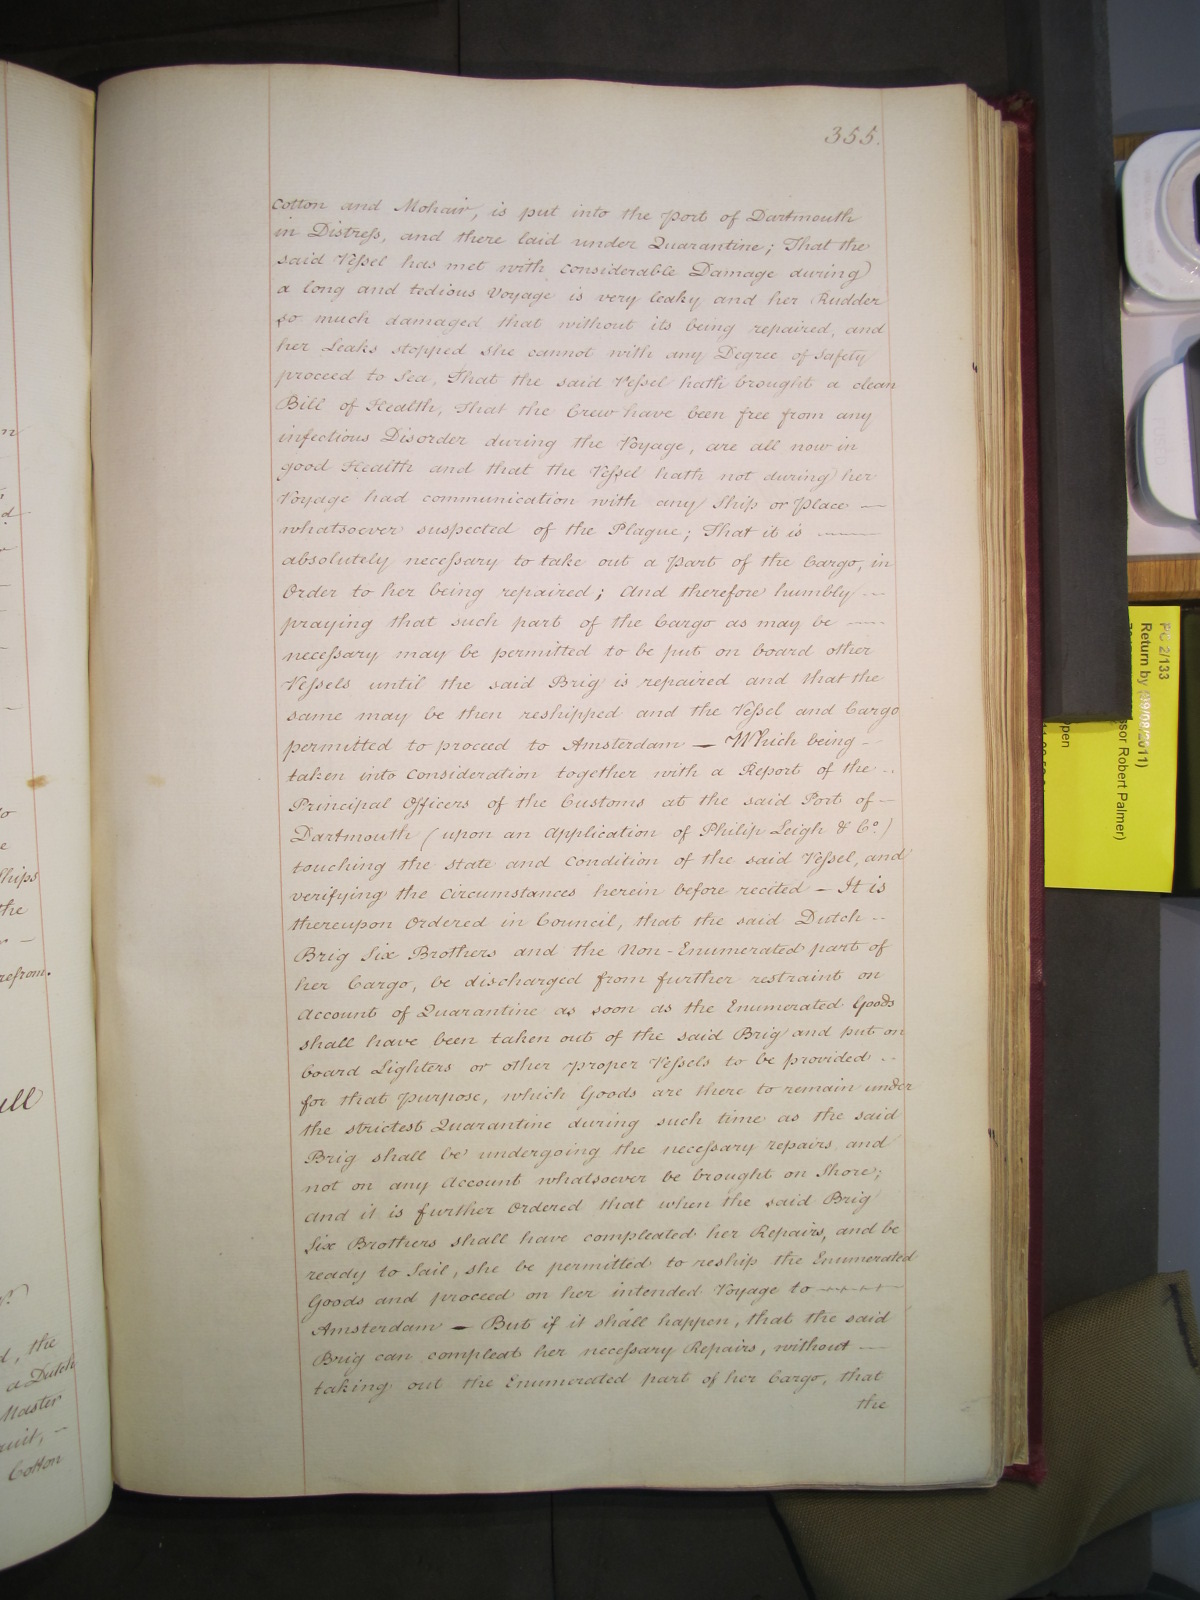 355.
Cotton and Mohair, is put into the port of Dartmouth
in Distress, and there laid under Quarantine; That the
said Vessel has met with considerable Damage during
a long and tedious Voyage is very leaky and her Rudder
so much damaged that without its being repaired, and
her Leaks stopped she cannot with any Degree of safety
proceed to Sea, That the said Vessel hath brought a clean
Bill of Health, That the Crew have been free from any
infectious Disorder during the Voyage, are all now in
good Health and that the Vessel hath not during her
Voyage had communication with any Ship or place —
whatsoever suspected of the Plague; That it is ——
absolutely necessary to take out a part of the Cargo, in
Order to her being repaired; And therefore humbly --
praying that such part of the Cargo as may be ——
necessary may be permitted to be put on board other
Vessels until the said Brig is repaired and that the
same may be then reshipped and the Vessel and Cargo
permitted to proceed to Amsterdam — Which being -
taken into Consideration together with a Report of the --
Principal Officers of the Customs at the said Port of -
Dartmouth (upon an Application of Philip Leigh & Co.)
touching the state and Condition of the said Vessel, and
verifying the Circumstances herein before recited — It is
thereupon Ordered in Council, that the said Dutch --
Brig Six Brothers and the Non-Enumerated part of
her Cargo, be discharged from further restraint on
Account of Quarantine as soon as the Enumerated Goods
shall have been taken out of the said Brig and put on
board Lighters or other proper Vessels to be provided --
for that purpose, which Goods are there to remain under
the strictest Quarantine during such time as the said
Brig shall be undergoing the necessary repairs, and
not on any Account whatsoever be brought on Shore;
and it is further Ordered that when the said Brig
Six Brothers shall have compleated her Repairs, and be
ready to Sail, she be permitted to reship the Enumerated
Goods and proceed on her intended Voyage to ——
Amsterdam — But if it shall happen, that the said
Brig can compleat her necessary Repairs, without —
taking out the Enumerated part of her Cargo, that
the
Ships
the
refrom.
d, the
a Dutch
Master
Cotton
PC 2/133
Return by (19/08/2011)
ssor Robert Palmer)
pen